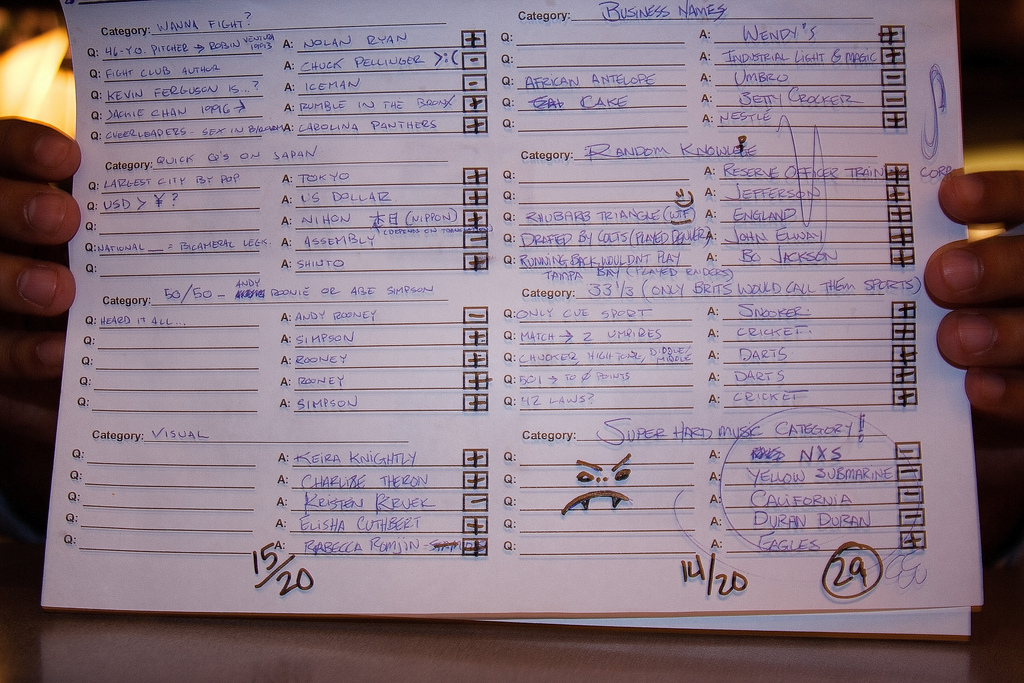 Category: WANNA FIGHT?
Q: 46-Y.O. PITCHER → ROBIN VENTURA 1993 A: NOLAN RYAN +
Q: FIGHT CLUB AUTHOR A: CHUCK PELLINGER >:( -
Q: KEVIN FERGUSON IS...? A: ICEMAN -
Q: JACKIE CHAN 1996 → A: RUMBLE IN THE BRONX +
Q: CHEERLEADERS - SEX IN A: CAROLINA PANTHERS +
Category: QUICK Q'S ON JAPAN
Q: LARGEST CITY BY POP A: TOKYO +
Q: USD > ¥? A: US DOLLAR +
Q: A: NIHON 本日 (NIPPON) +
(DEPENDS ON
Q: NATIONAL __ = BICAMERAL LEGIS. A: ASSEMBLY -
Q: A: SHINTO +
Category: 50/50 - ANDY ROONIE OR ABE SIMPSON
Q: HEARD IT ALL... A: ANDY ROONEY -
Q: A: SIMPSON +
Q: A: ROONEY +
Q: A: ROONEY +
Q: A: SIMPSON +
Category: VISUAL
Q: A: KEIRA KNIGHTLY +
Q: A: CHARLIZE THERON +
Q: A: KRISTEN KRUEK -
Q: A: ELISHA CUTHBERT +
Q: A: RABECCA ROMJIN +
15/20
Category: BUSINESS NAMES
Q: A: WENDY'S +
Q: A: INDUSTRIAL LIGHT & MAGIC +
Q: AFRICAN ANTELOPE A: UMBRO -
Q: CAKE A: BETTY CROCKER -
Q: A: NESTLE +
Category: RANDOM KNOWLEDGE
Q: A: RESERVE OFFICER TRAIN CORP +
Q: A: JEFFERSON +
Q: RHUBARB TRIANGLE (WTF) A: ENGLAND +
Q: DRAFTED BY COLTS (PLAYED DENVER) A: JOHN ELWAY +
Q: RUNNING BACK WOULDNT PLAY A: BO JACKSON +
TAMPA BAY (PLAYED RAIDERS)
Category: 33 1/3 (ONLY BRITS WOULD CALL THEM SPORTS)
Q: ONLY CUE SPORT A: SNOOKER +
Q: MATCH → 2 UMPIRES A: CRICKET +
Q: CHUCKER, HIGH TONE, DIDDLE/MIDDLE A: DARTS +
Q: 501 → TO 0 POINTS A: DARTS +
Q: 42 LAWS? A: CRICKET +
Category: SUPER HARD MUSIC CATEGORY!
Q: A: NXS -
Q: A: YELLOW SUBMARINE -
Q: A: CALIFORNIA -
Q: A: DURAN DURAN -
Q: A: EAGLES +
14/20 29